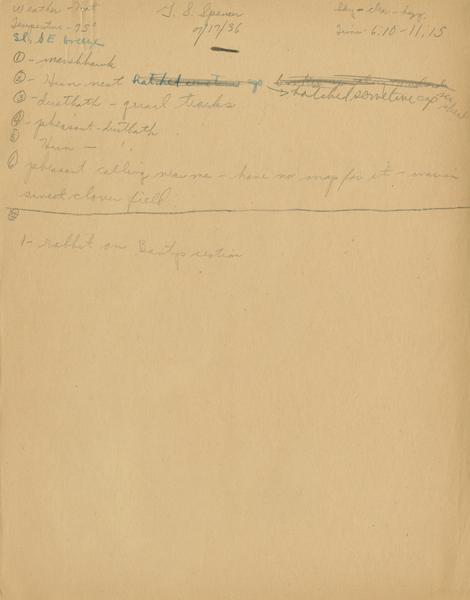 Weather - Hot
Temperature - 75°
Sl. SE breeze
T. S. Spencer
7/17/36
Sky - clear - hazy
Time - 6:10 - 11:15
① - marshhawk
② - Hun nest hatched sometime ago
③ - dustbath - quail tracks
④ - pheasant - dustbath
⑤ Hun - "
⑥ pheasant calling near me - have no map for it - was in
sweet clover field.
1 - rabbit on section